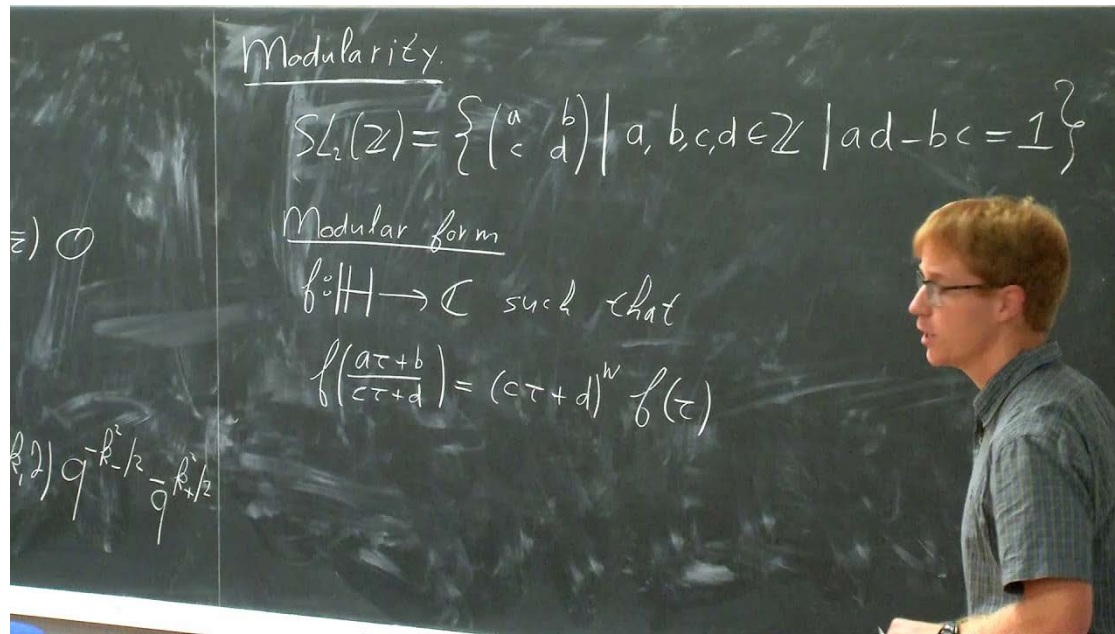 Modularity.
SL₂(ℤ) = {(a b c d) | a, b, c, d ∈ ℤ | ad - bc = 1}
Modular form
f: ℍ → ℂ such that
f((aτ+b)/(cτ+d)) = (cτ+d)^w f(τ)
q^{-k₋²/2} q̄^{k₊²/2}